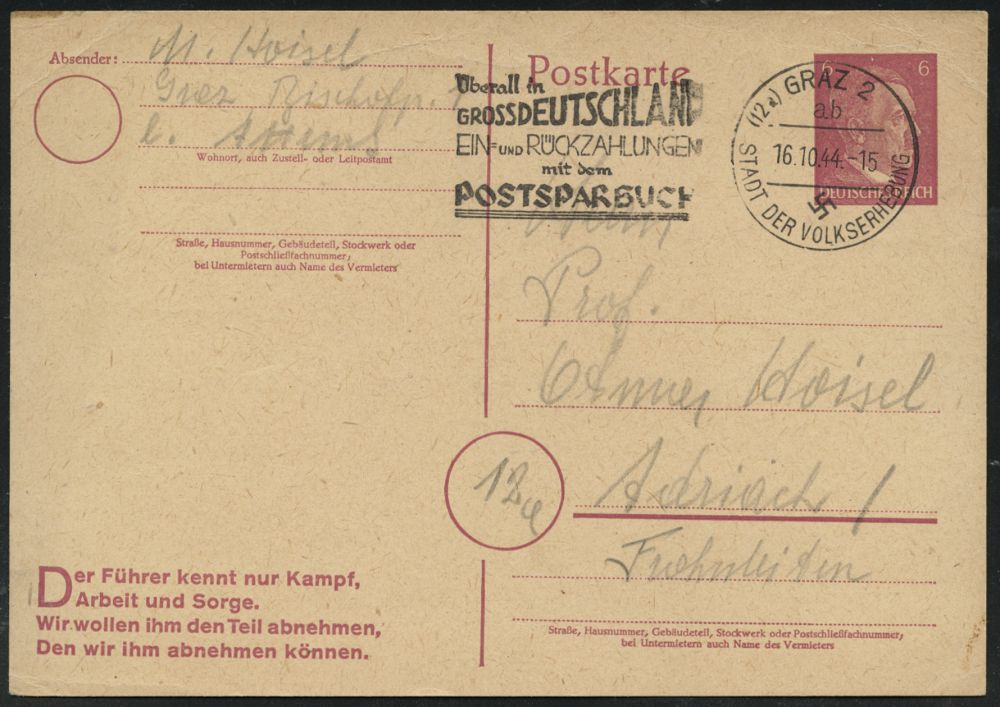 Absender: M. Hoisel
Graz Bischofp.
b. Attems
Wohnort, auch Zustell- oder Leitpostamt
Straße, Hausnummer, Gebäudeteil, Stockwerk oder
Postschließfachnummer;
bei Untermietern auch Name des Vermieters
Postkarte
Überall in
GROSSDEUTSCHLAND
EIN= UND RÜCKZAHLUNGEN
mit dem
POSTSPARBUCH
6 6
DEUTSCHES REICH
(12a) GRAZ 2
ab
16.10.44.-15
STADT DER VOLKSERHEBUNG
Prof.
Hoisel
12a
Adriach /
Frohnleiten
Straße, Hausnummer, Gebäudeteil, Stockwerk oder Postschließfachnummer;
bei Untermietern auch Name des Vermieters
Der Führer kennt nur Kampf,
Arbeit und Sorge.
Wir wollen ihm den Teil abnehmen,
Den wir ihm abnehmen können.